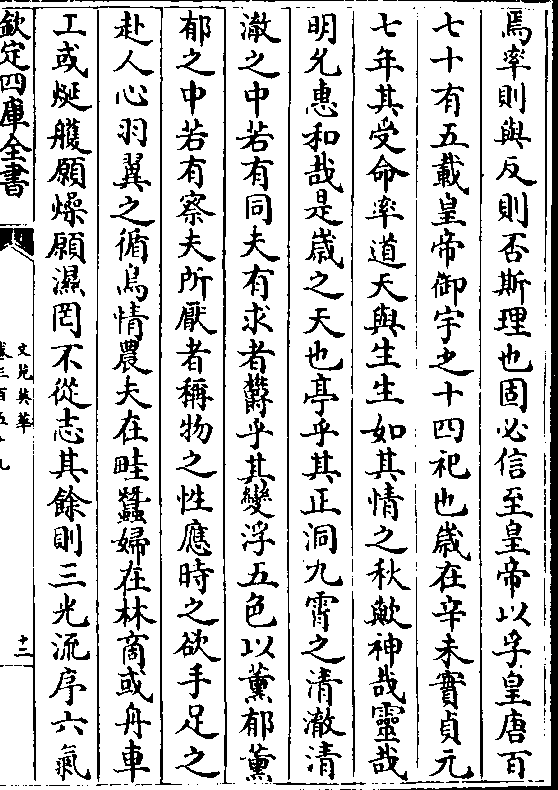 焉率則與反則否斯理也固必信至皇帝以孚皇唐百
七十有五載皇帝御宇之十四祀也歳在辛未實貞元
七年其受命率道天與生生如其情之秋歟神哉靈哉
明允惠和哉是歳之天也亭乎其正洞九霄之清澈清
澈之中若有同夫有求者欝乎其變浮五色以薰郁薰
郁之中若有察夫所厭者稱物之性應時之欲手足之
赴人心羽翼之循鳥情農夫在畦蠶婦在林商或舟車
工或烻艧願燥願濕罔不從志其餘則三光流序六氣
欽定四庫全書
文苑英華
卷三百五十九
十二